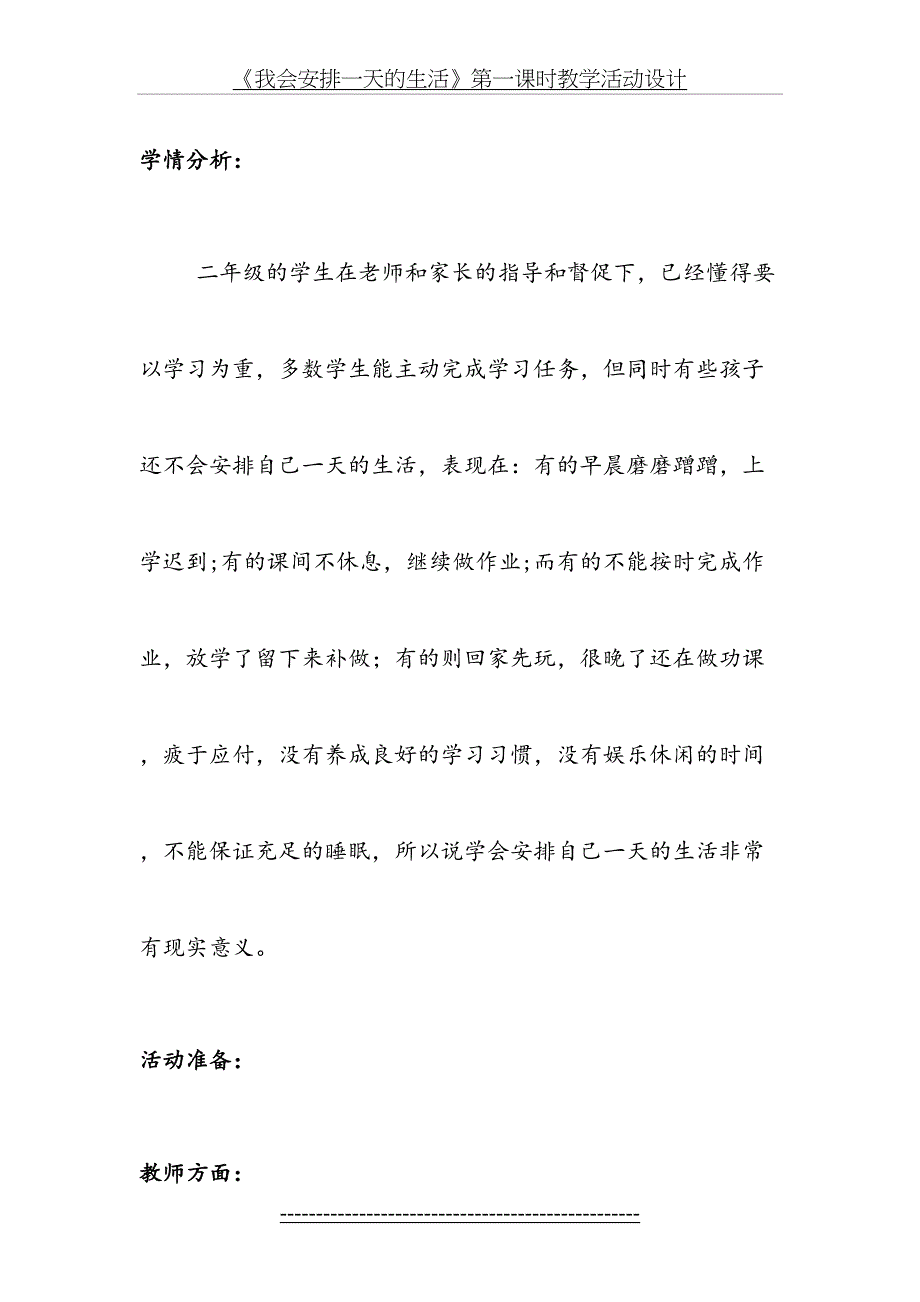 《我会安排一天的生活》第一课时教学活动设计
学情分析：
二年级的学生在老师和家长的指导和督促下，已经懂得要
以学习为重，多数学生能主动完成学习任务，但同时有些孩子
还不会安排自己一天的生活，表现在：有的早晨磨磨蹭蹭，上
学迟到;有的课间不休息，继续做作业;而有的不能按时完成作
业，放学了留下来补做；有的则回家先玩，很晚了还在做功课
，疲于应付，没有养成良好的学习习惯，没有娱乐休闲的时间
，不能保证充足的睡眠，所以说学会安排自己一天的生活非常
有现实意义。
活动准备：
教师方面：
---------------------------------------------